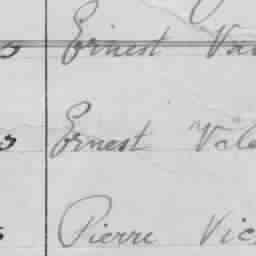 Ernest Va
Ernest Vale
Pierre Vic